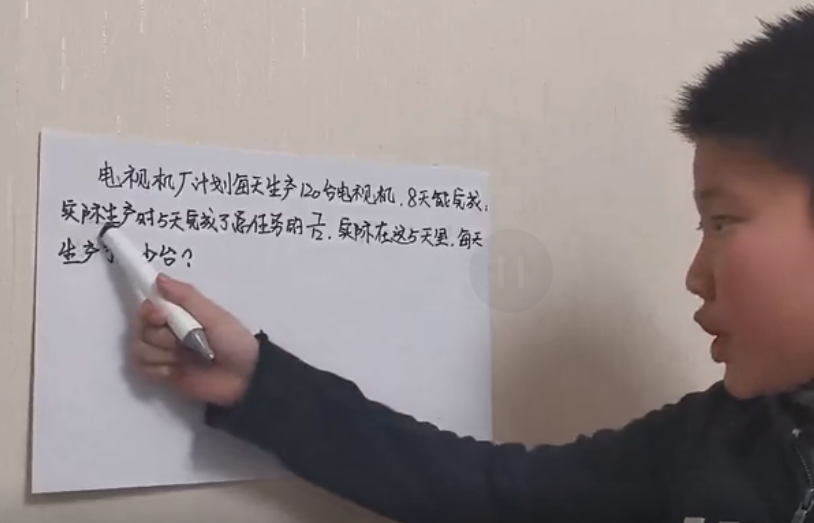 电视机厂计划每天生产120台电视机，8天能完成；
实际生产时5天完成了总任务的7/12，实际在这5天里，每天
生产 少台？